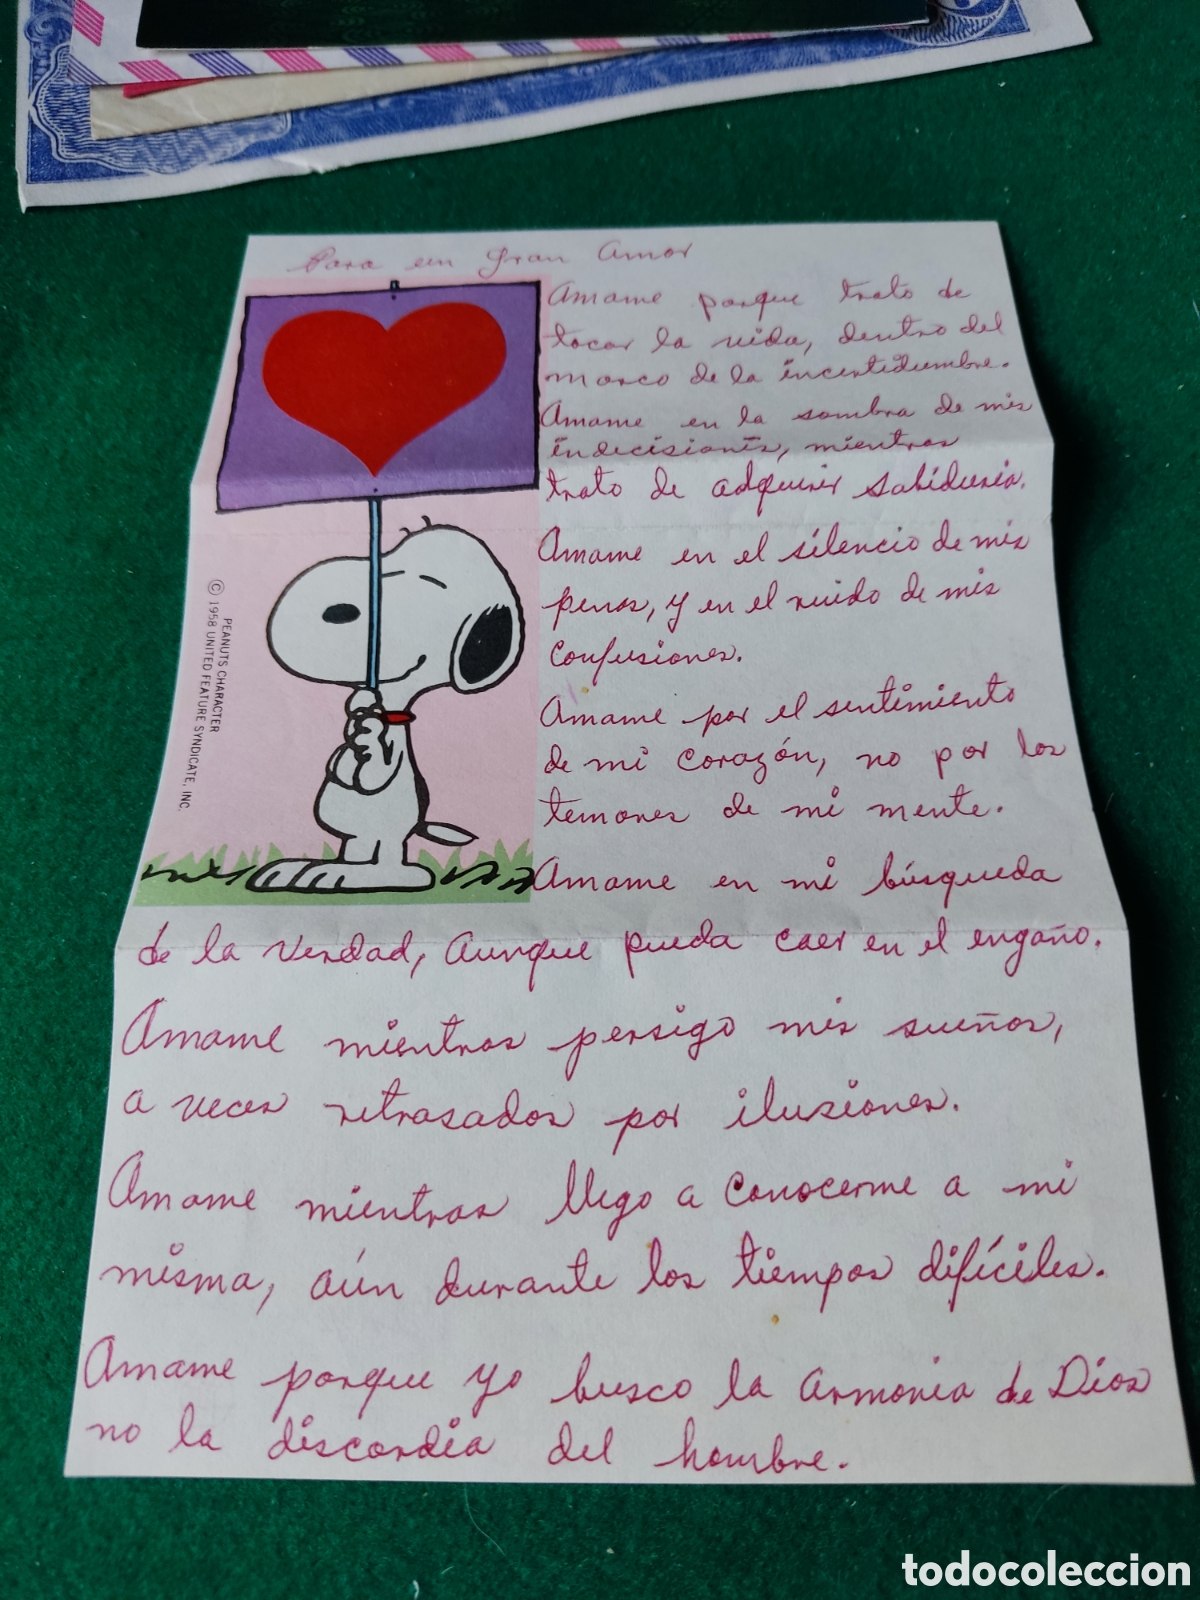 Para un gran Amor
Amame porque trato de
tocar la vida, dentro del
marco de la incertidumbre.
Amame en la sombra de mis
indecisiones, mientras
trato de adquirir sabiduria.
Amame en el silencio de mis
penas, y en el ruido de mis
confusiones.
Amame por el sentimiento
de mi corazón, no por los
temores de mi mente.
Amame en mi búsqueda
de la verdad, aunque pueda caer en el engaño.
Amame mientras persigo mis sueños,
a veces retrasados por ilusiones.
Amame mientras llego a conocerme a mi
misma, aún durante los tiempos difíciles.
Amame porque yo busco la armonia de Dios
no la discordia del hombre.
PEANUTS CHARACTER
© 1958 UNITED FEATURE SYNDICATE, INC.
todocoleccion